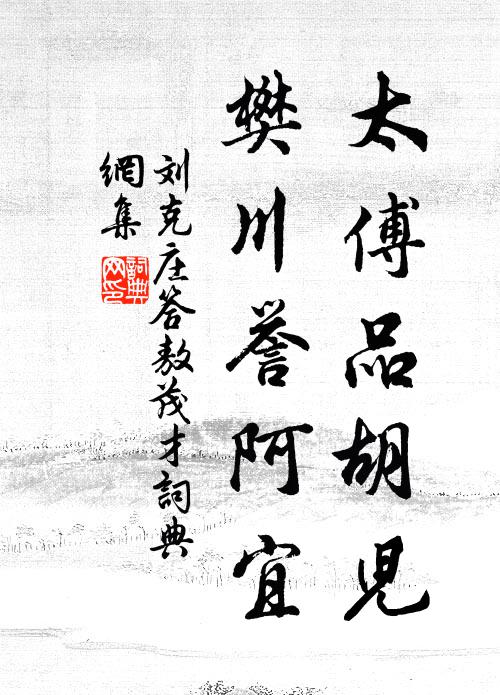 太傅品胡児
樊川誉阿宜
刘克庄答敖茂才詞典
網集
詞典網印